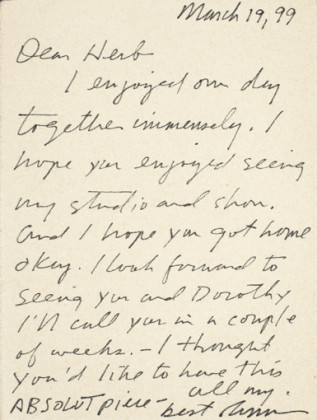 March 19, 99
Dear Herb
I enjoyed our day
together immensely. I
hope you enjoyed seeing
my studio and show.
And I hope you got home
okay. I look forward to
seeing you and Dorothy
I'll call you in a couple
of weeks. - I thought
you'd like to have this
ABSOLUT piece - all my
best